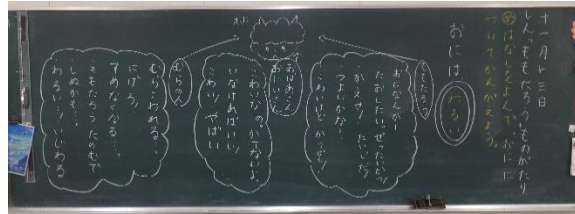 十一月十三日
しん、ももたろうものがたり
めはなしをよんで、おにに
ついてかんがえよう。
おには わるい
ももたろう
おになんかー
たおしたい。ぜったいかつ
かえせ!たいじだ!
つよいな…
こわいけど、かつぞー!
おに
おばあさん
おじいさん
こわいな。かてないよ。
いなければいい
こわい やばい
むらの人
むらこわれる…。
にげろ!
すめなくなる…。
ももたろうたのむで
しぬかも…。
わるい!いじわる